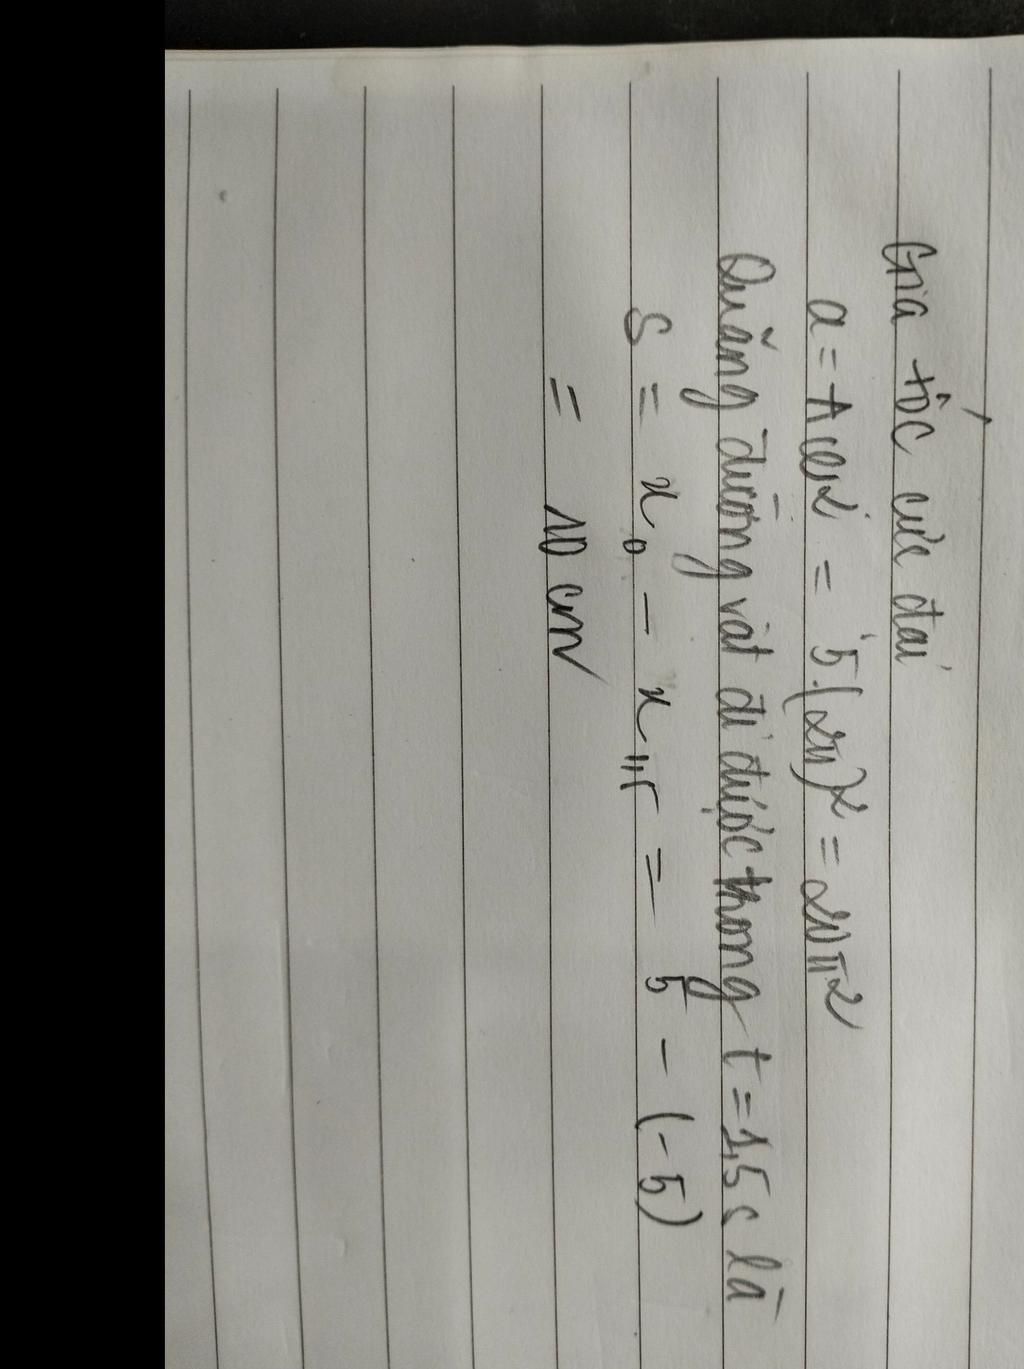 Gia tốc cực đại
a = Aω² = 5.(2π)² = 20π²
Quãng đường vật đi được trong t = 1,5 s là
S = x₀ - x₁,₅ = 5 - (-5)
= 10 cm